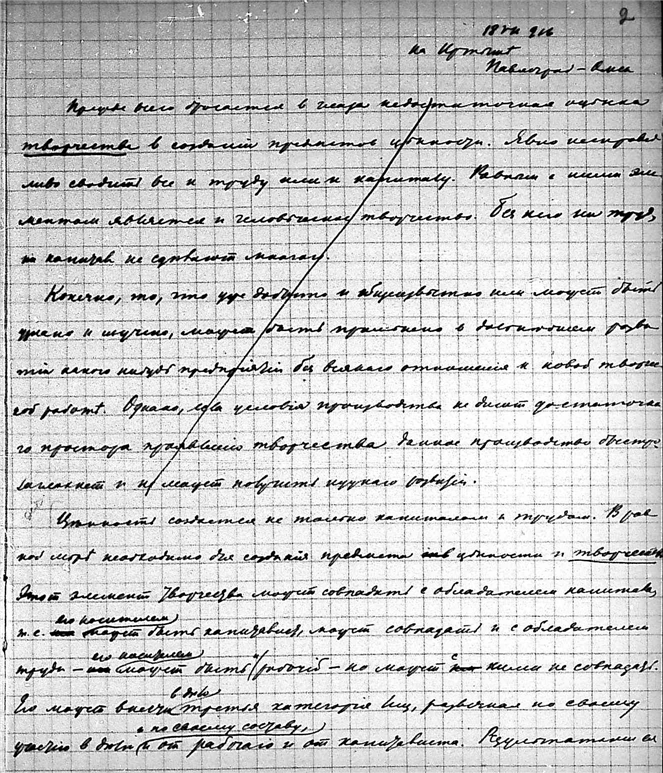 2
18 VII 916
на Иртыше
Павлоград – Омск
Прежде всего бросается в глаза недостаточная оценка
творчества в создании предметов ценности. Явно несправед
ливо сводить все к труду или к капиталу. Равным с ними эле
ментом является и человеческое творчество. Без него ни труд,
ни капитал не сделают многого.
Конечно, то, что уже добыто и общеизвестно или может быть
узнано и изучено, может быть применено в достаточном разви
тіи какого нибудь предпріятія без всякого отношения к новой творче
ской работѣ. Однако, если условія производства не дают достаточна
го простора проявленію творчества данное производство быстро
заглохнет и не может получить нужного развитія.
Цѣнность создается не только капиталом и трудом. В рав
ной мѣрѣ необходимо для создания предмета цѣнности и творчество
Этот элемент творчества может совпадать с обладателем капитала,
т.е. его носителем может быть капиталист, может совпадать и с обладателем
труда – его носителем может быть рабочій – но может с ними не совпадать.
Его может внести в дѣло третья категорія лиц, различная по своему
участію в дѣлѣ и по своему составу, от рабочаго и от капиталиста.